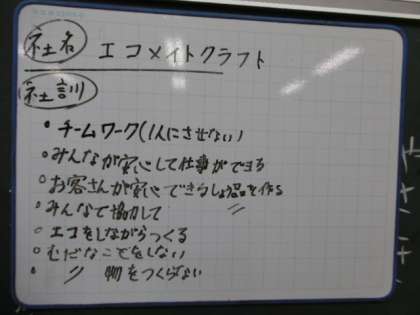 社名 エコメイトクラフト
社訓
・チームワーク(1人にさせない)
○みんなが安心して仕事ができる
○お客さんが安心できるしょう品を作る
○みんなで協力して 〃
○エコをしながらつくる
○むだなことをしない
・ 〃 物をつくらない